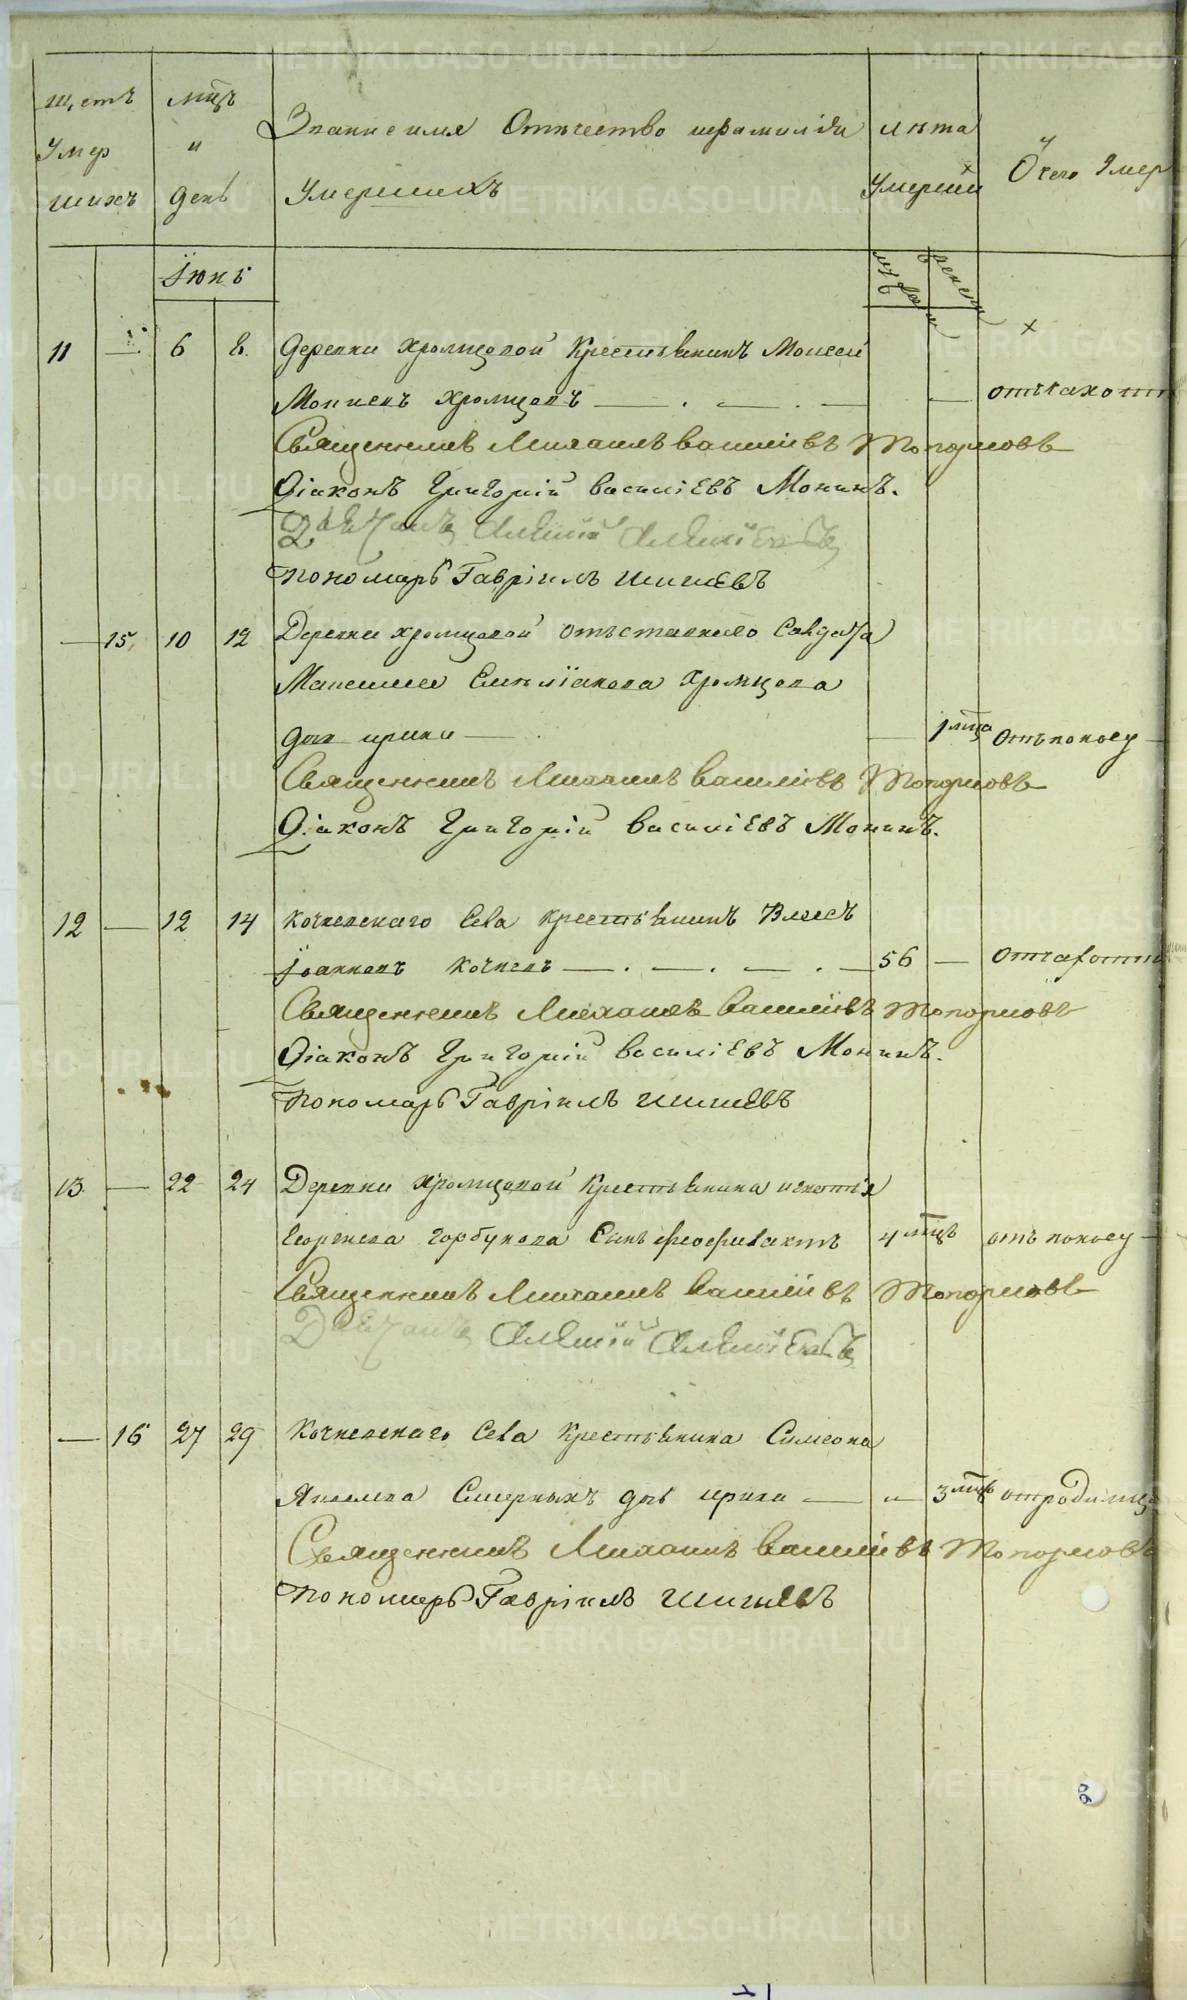 Щетъ умер шихъ
мцъ и день
Званіе имя Отечество ифамиліи умершихъ
лѣта умерши
Отчего Умер
Іюнь
мужеска
женска
11 — 6 8. Деревни Хромцовой Крестьянинъ Моисей
Хромцовъ — — — —
Священникъ Михаилъ Васильевъ Топорковъ
Діаконъ Григорій Васильевъ Монинъ.
Алексій Алексіевъ
Пономарь Гавріилъ Шишевъ
— 15. 10 12 Деревни Хромцовой отъставнаго Салдата
Максима Емиліанова Хромцова
дочь ирина — — 1 мца отъ поносу —
Священникъ Михаилъ Васильевъ Топорковъ
Діаконъ Григорій Васильевъ Монинъ.
12 — 12 14 Кочневскаго Села крестьянинъ Власъ
Іоанновъ Кочневъ — . — . — . — 56 —
Священникъ Михаилъ Васильевъ Топорковъ
Діаконъ Григорій Васильевъ Монинъ.
Пономарь Гавріилъ Шишевъ
13. — 22 24 Деревни Хромцовой Крестьянина игнатья
Георгиева Горбунова Сынъ феофилактъ 4 мцъ отъ поносу —
Священникъ Михаилъ Васильевъ Топорковъ
Алексій Алексіевъ
— 16 27 29 Кочневскаго Села Крестьянина Симеона
Смирныхъ дочь ирина — „ — 3 мцъ отродимца
Священникъ Михаилъ Васильевъ Топорковъ
Пономарь Гавріилъ Шишевъ
METRIKI.GASO-URAL.RU